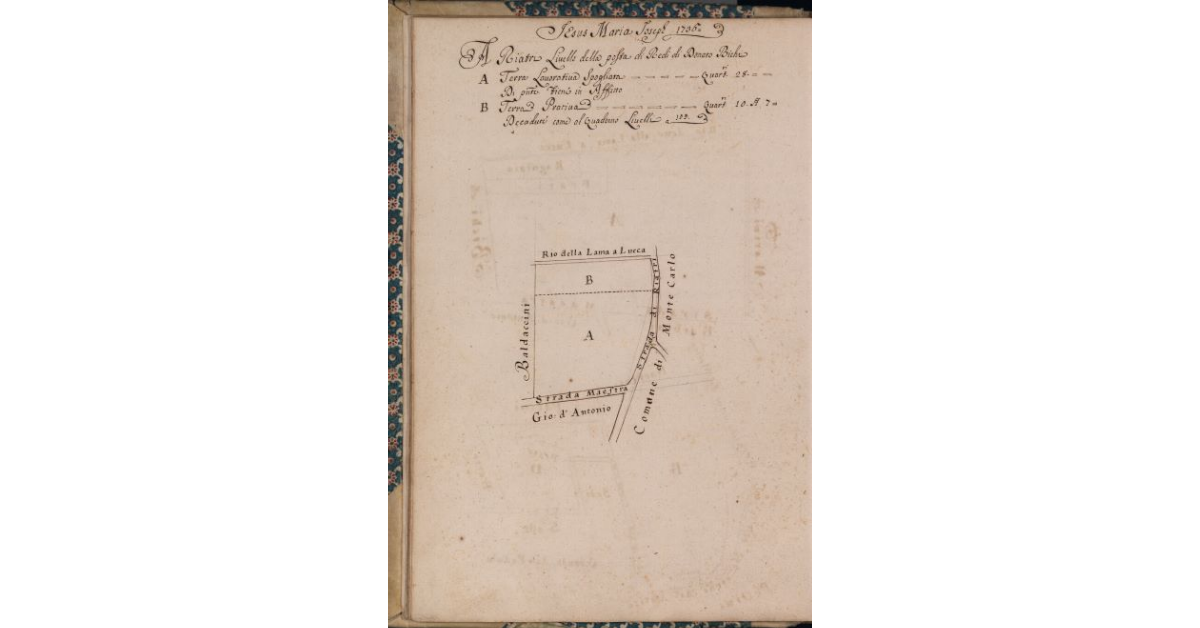 Jesus Maria Joseph 1706
A Riatri Livello della posta di Redi di Donato Bichi
A Terra Lavorativa Spogliata Quart 28
Di pute Viene in Affitto
B Terra Prativa Quart 10. 7
Decadute come al Quaderno Livelli 103.
Rio della Lama a Lucca
B
Baldaccini
A
Strada di Riatri
Comune di Monte Carlo
Strada Maestra
Gio: d' Antonio